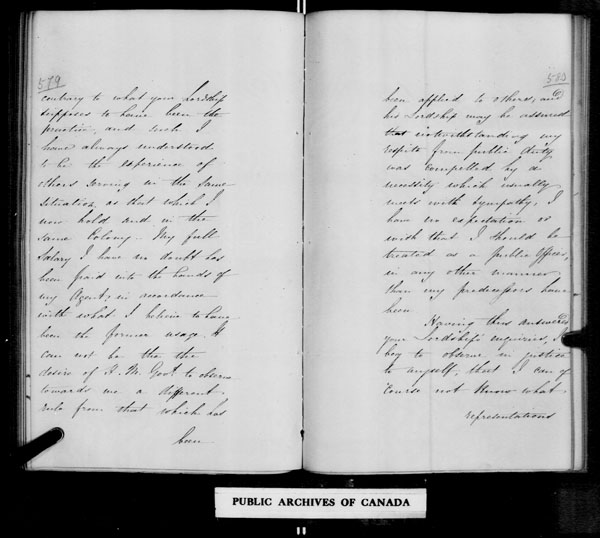 579
contrary to what your Lordship
supposes to have been the
practice, and such I
have always understood
to be the experience of
others serving in the same
situation as that which I
now hold and in the
same Colony. My full
Salary I have no doubt has
been paid into the hands of
my Agent; in accordance
with what I believe to have
been the former usage. It
can not be the the
desire of H. M. Govt to observe
towards me a different
rule from that which has
been
580
been applied to others, and
his Lordship may be assured
that notwithstanding my
respite from public duty
was compelled by a
necessity which usually
meets with sympathy, I
have no expectation or
wish that I should be
treated as a public Officer,
in any other manner
than my predecessors have
been
Having thus answered
your Lordship's inquiries, I
beg to observe in justice
to myself, that I can of
course not know what
representations
PUBLIC ARCHIVES OF CANADA